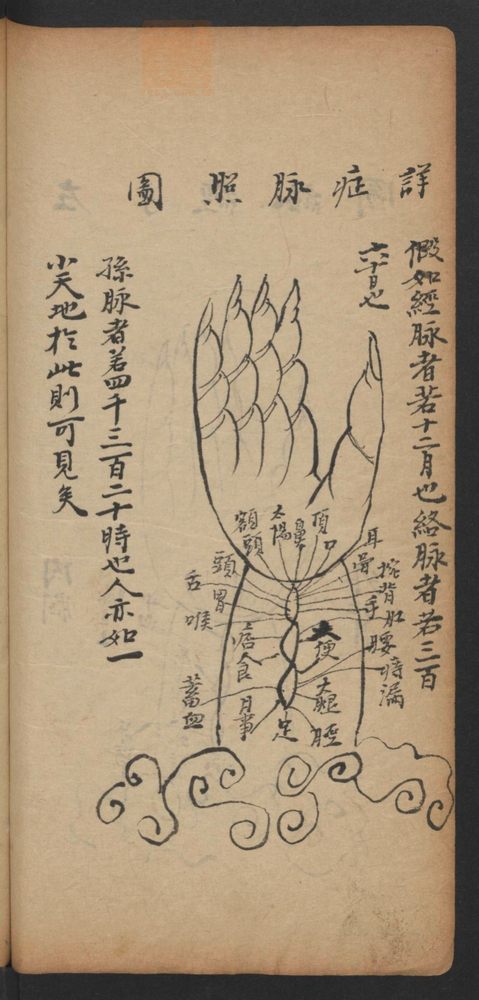 詳症脉照圖
假如經脉者若十二月也絡脉者若三百
六十日也
孫脉者若四千三百二十時也人亦如一
小天地於此則可見矣
頂
口
鼻
太陽
額頭
頭
胃
舌
喉
耳
手
背肚
腰
痔漏
宿食
月事
蓄血
大便
大腿
足
脛